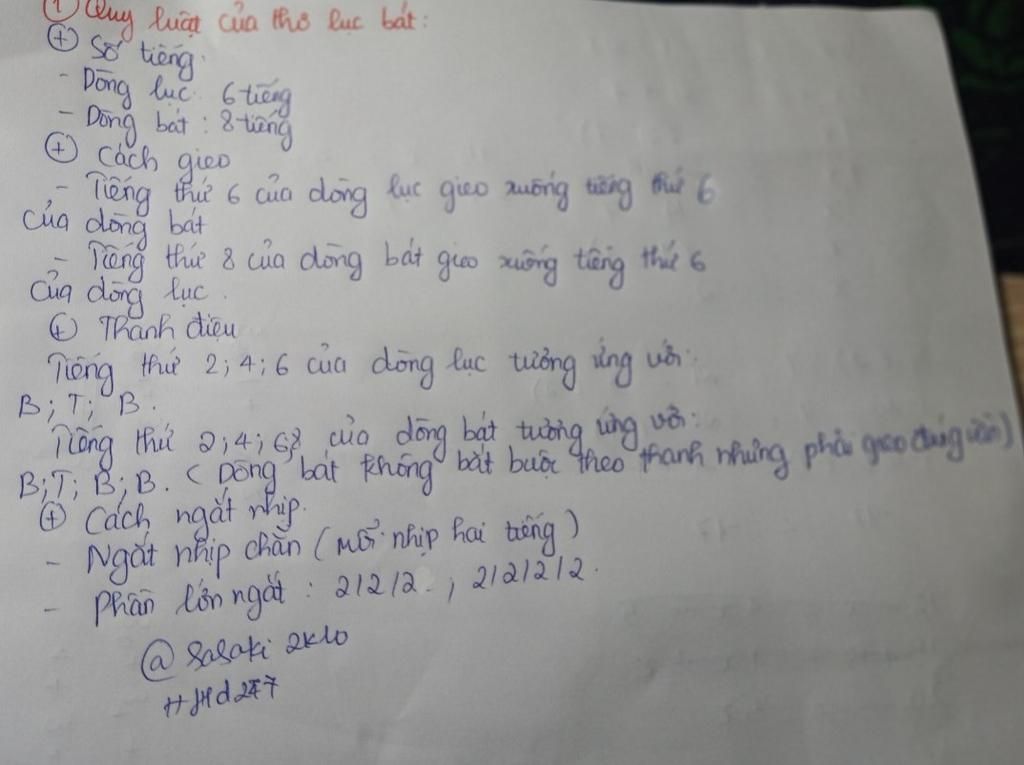 ① Quy luật của thơ lục bát:
⊕ Số tiếng.
- Dòng lục: 6 tiếng
- Dòng bát: 8 tiếng
⊕ Cách gieo
- Tiếng thứ 6 của dòng lục gieo xuống tiếng thứ 6
của dòng bát
- Tiếng thứ 8 của dòng bát gieo xuống tiếng thứ 6
của dòng lục.
⊕ Thanh điệu
Tiếng thứ 2; 4; 6 của dòng lục tương ứng với:
B; T; B.
Tiếng thứ 2; 4; 6; 8 của dòng bát tương ứng với:
B; T; B; B. (Dòng bát không bắt buộc theo thanh nhưng phải gieo đúng vần)
⊕ Cách ngắt nhịp.
- Ngắt nhịp chẵn (mỗi nhịp hai tiếng)
- Phần lớn ngắt: 2/2/2., 2/2/2/2.
@ Sasaki 2k10